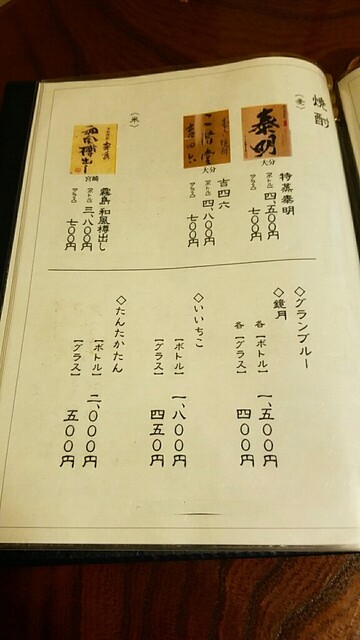 焼酎
(麦)
泰明
大分
特蒸泰明
[ボトル] 四、五〇〇円
[グラス] 七〇〇円
二階堂
吉四六
大分
吉四六
[ボトル] 四、八〇〇円
[グラス] 七〇〇円
(米)
宮崎
霧島 和風樽出し
[ボトル] 三、八〇〇円
[グラス] 七〇〇円
◇グランブルー
◇鏡月
各 [ボトル] 一、五〇〇円
各 [グラス] 四〇〇円
◇いいちこ
[ボトル] 一、八〇〇円
[グラス] 四五〇円
◇たんたかたん
[ボトル] 二、〇〇〇円
[グラス] 五〇〇円